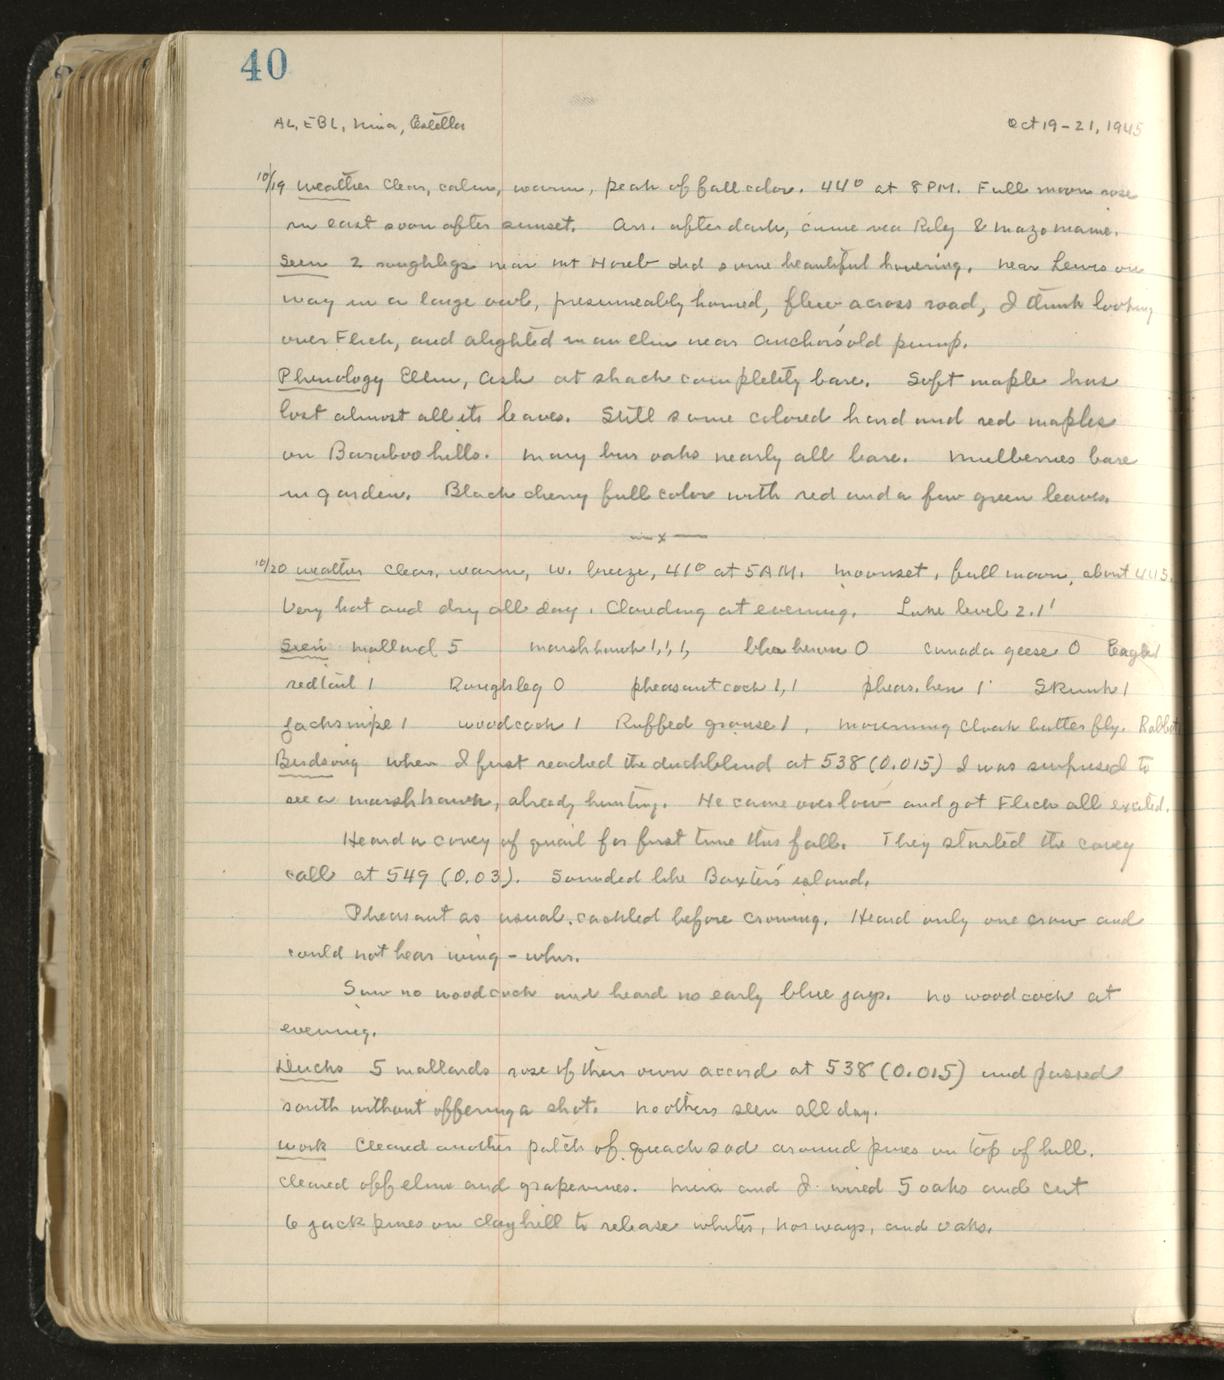 40
AL, EBL, Nina, Estella Oct 19-21, 1945
10/19 Weather Clear, calm, warm, peak of fall color. 44° at 8 PM. Full moon rose
in east soon after sunset. Arr. after dark, came via Riley & Mazomanie.
Seen 2 roughlegs near Mt Horeb did some beautiful hovering. Near Lewis on
way in a large owl, presumeably horned, flew across road, I think looking
over Flick, and alighted in an elm near Anchor's old pump.
Phenology Elm, Ash at shack completely bare. Soft maple has
lost almost all its leaves. Still some colored hard and red maples
on Baraboo hills. Many bur oaks nearly all bare. Mulberries bare
in garden. Black cherry full color with red and a few green leaves.
x
10/20 Weather Clear, warm, W. breeze, 41° at 5 AM. Moonset, full moon, about 445.
Very hot and dry all day. Clouding at evening. Lake level 2.1'
Seen mallard 5 marshhawk 1, 1, 1, blue heron 0 Canada geese 0 Eagle 1
redtail 1 Roughleg 0 pheasant cock 1, 1 pheas. hen 1 Skunk 1
jacksnipe 1 woodcock 1 Ruffed grouse 1, Mourning Cloak butterfly. Rabbit
Birdsong When I first reached the duckblind at 538 (0.015) I was surprised to
see a marshhawk, already hunting. He came over low and got Flick all excited.
Heard a covey of quail for first time this fall. They started the covey
call at 549 (0.03). Sounded like Baxter's island.
Pheasant as usual cackled before crowing. Heard only one crow and
could not hear wing-whir.
Saw no woodcock and heard no early blue jays. No woodcock at
evening.
Ducks 5 mallards rose of their own accord at 538 (0.015) and passed
south without offering a shot. No others seen all day.
Work Cleared another patch of quack sod around pines on top of hill.
Cleared off elms and grapevines. Nina and I wired 5 oaks and cut
6 jack pines on clay hill to release whites, norways, and oaks.